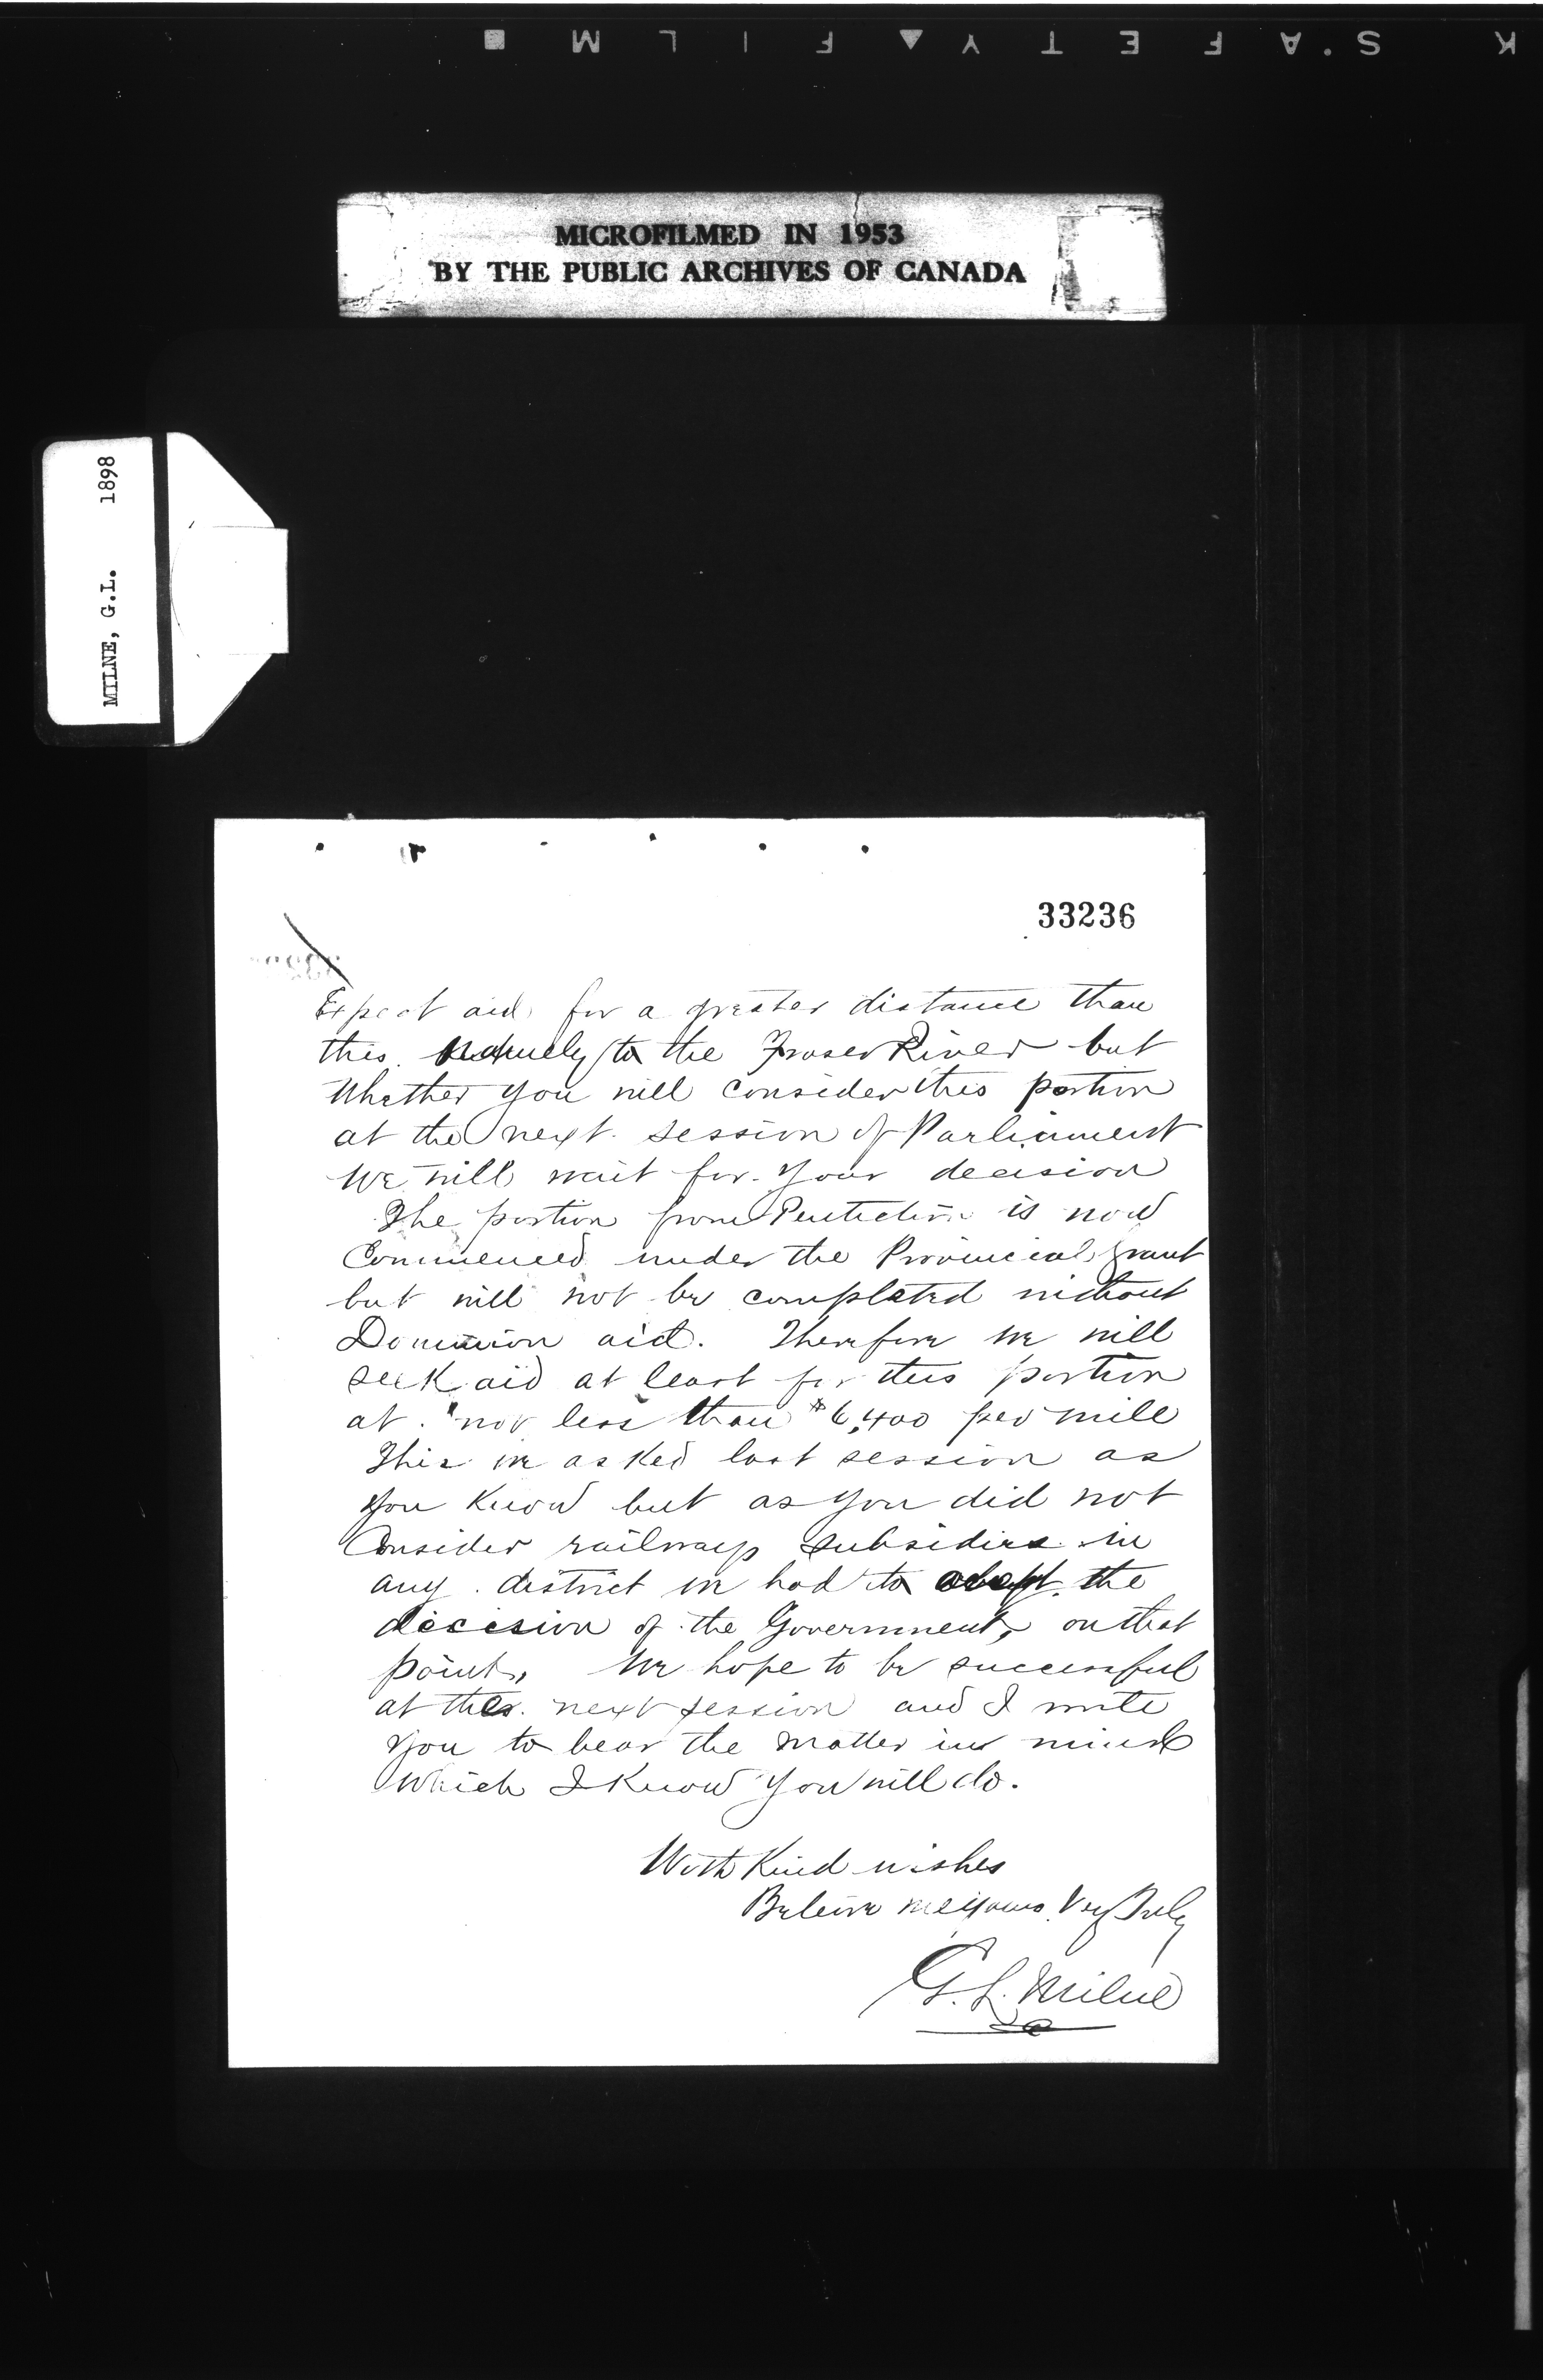 K S.A F E T Y ▲ F I L M ■
MICROFILMED IN 1953
BY THE PUBLIC ARCHIVES OF CANADA
MILNE, G.L. 1898
33236
Expect aid for a greater distance than
this namely to the Fraser River but
Whether you will consider this portion
at the next session of Parliament
We will wait for your decision
The portion from Penticton is now
Commenced under the Provincial Grant
but will not be completed without
Dominion aid. Therefore we will
seek aid at least for this portion
at not less than $6,400 per mile
This we asked last session as
you know but as you did not
Consider railway subsidies in
any district we had to the
decision of the Government, on that
point, We hope to be successful
at the next session and I write
you to bear the matter in mind
Which I know you will do.
With Kind wishes
Believe me yours Very Truly
G. L. Milne